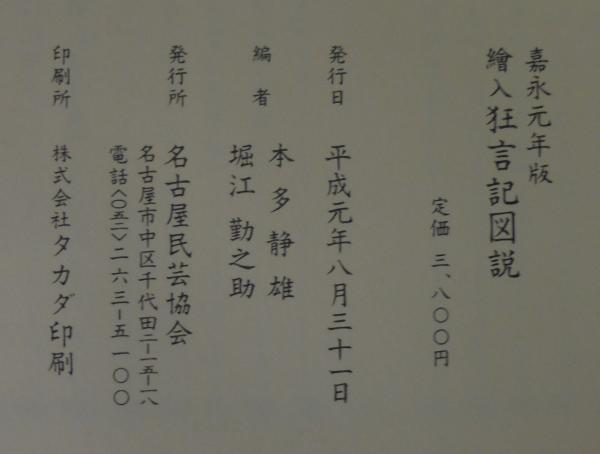 嘉永元年版
繪入狂言記図説
定価 三、八〇〇円
発行日 平成元年八月三十一日
編者 本多静雄
堀江勤之助
発行所 名古屋民芸協会
名古屋市中区千代田二－一五－一八
電話〈〇五二〉二六三－五一〇〇
印刷所 株式会社タカダ印刷